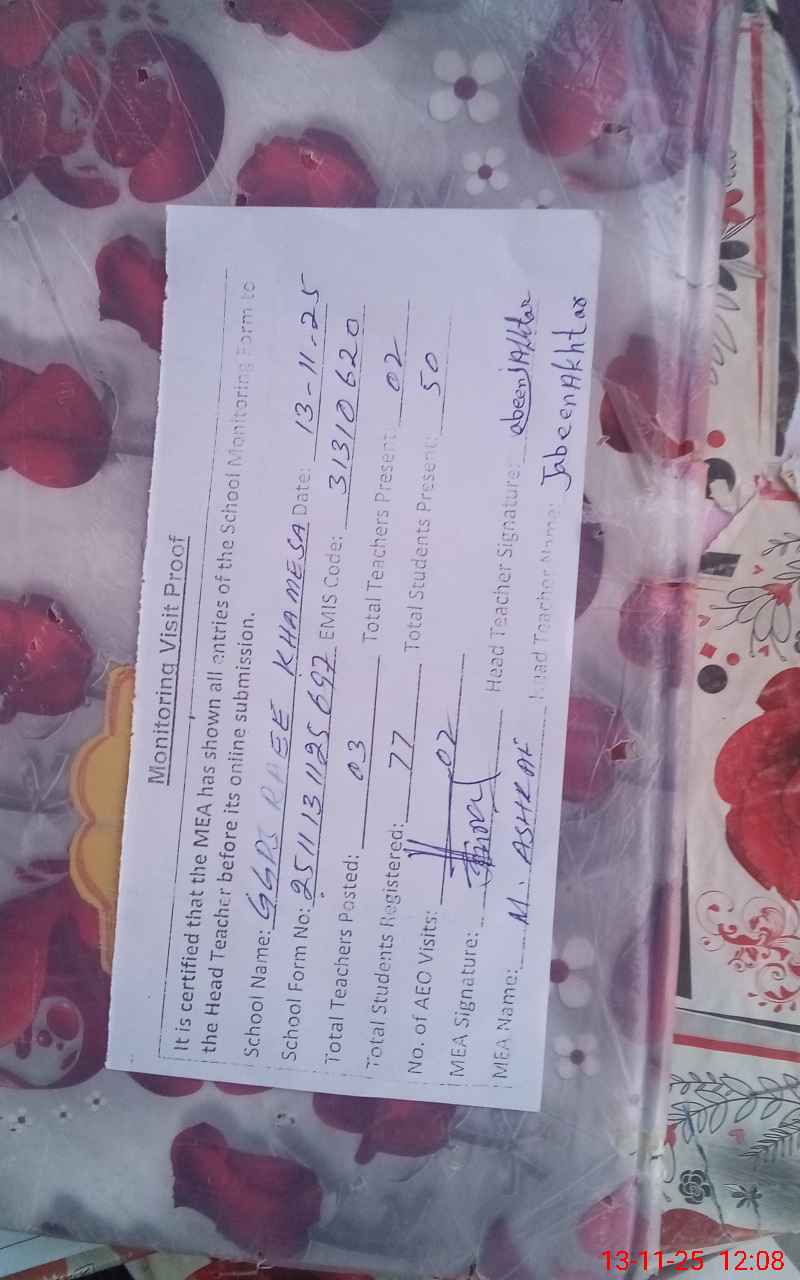 Monitoring Visit Proof
It is certified that the MEA has shown all entries of the School Monitoring Form to
the Head Teacher before its online submission.
School Name: GGPS KHAMESA Date: 13-11-25
School Form No: 2511131125697 EMIS Code: 31310620
Total Teachers Posted: 03 Total Teachers Present: 02
Total Students Registered: 77 Total Students Present: 50
No. of AEO Visits: 02
MEA Signature: Head Teacher Signature: Jabeen Akhtar
MEA Name: M. ASHRAF Head Teacher Name: Jabeen Akhtar
13-11-25 12:08